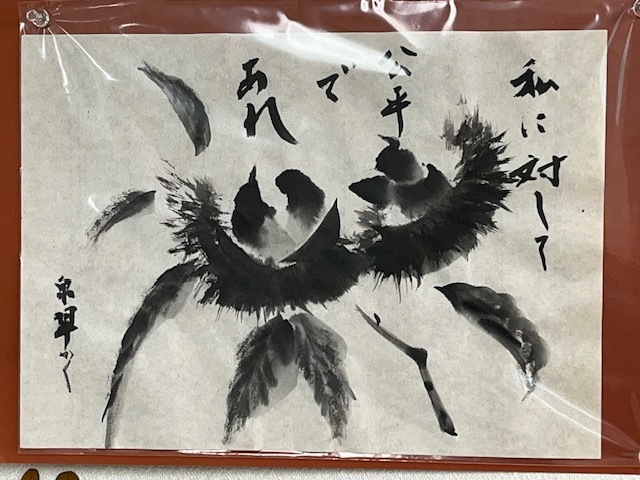 私に対して
公平
で
あれ
泉翠かく